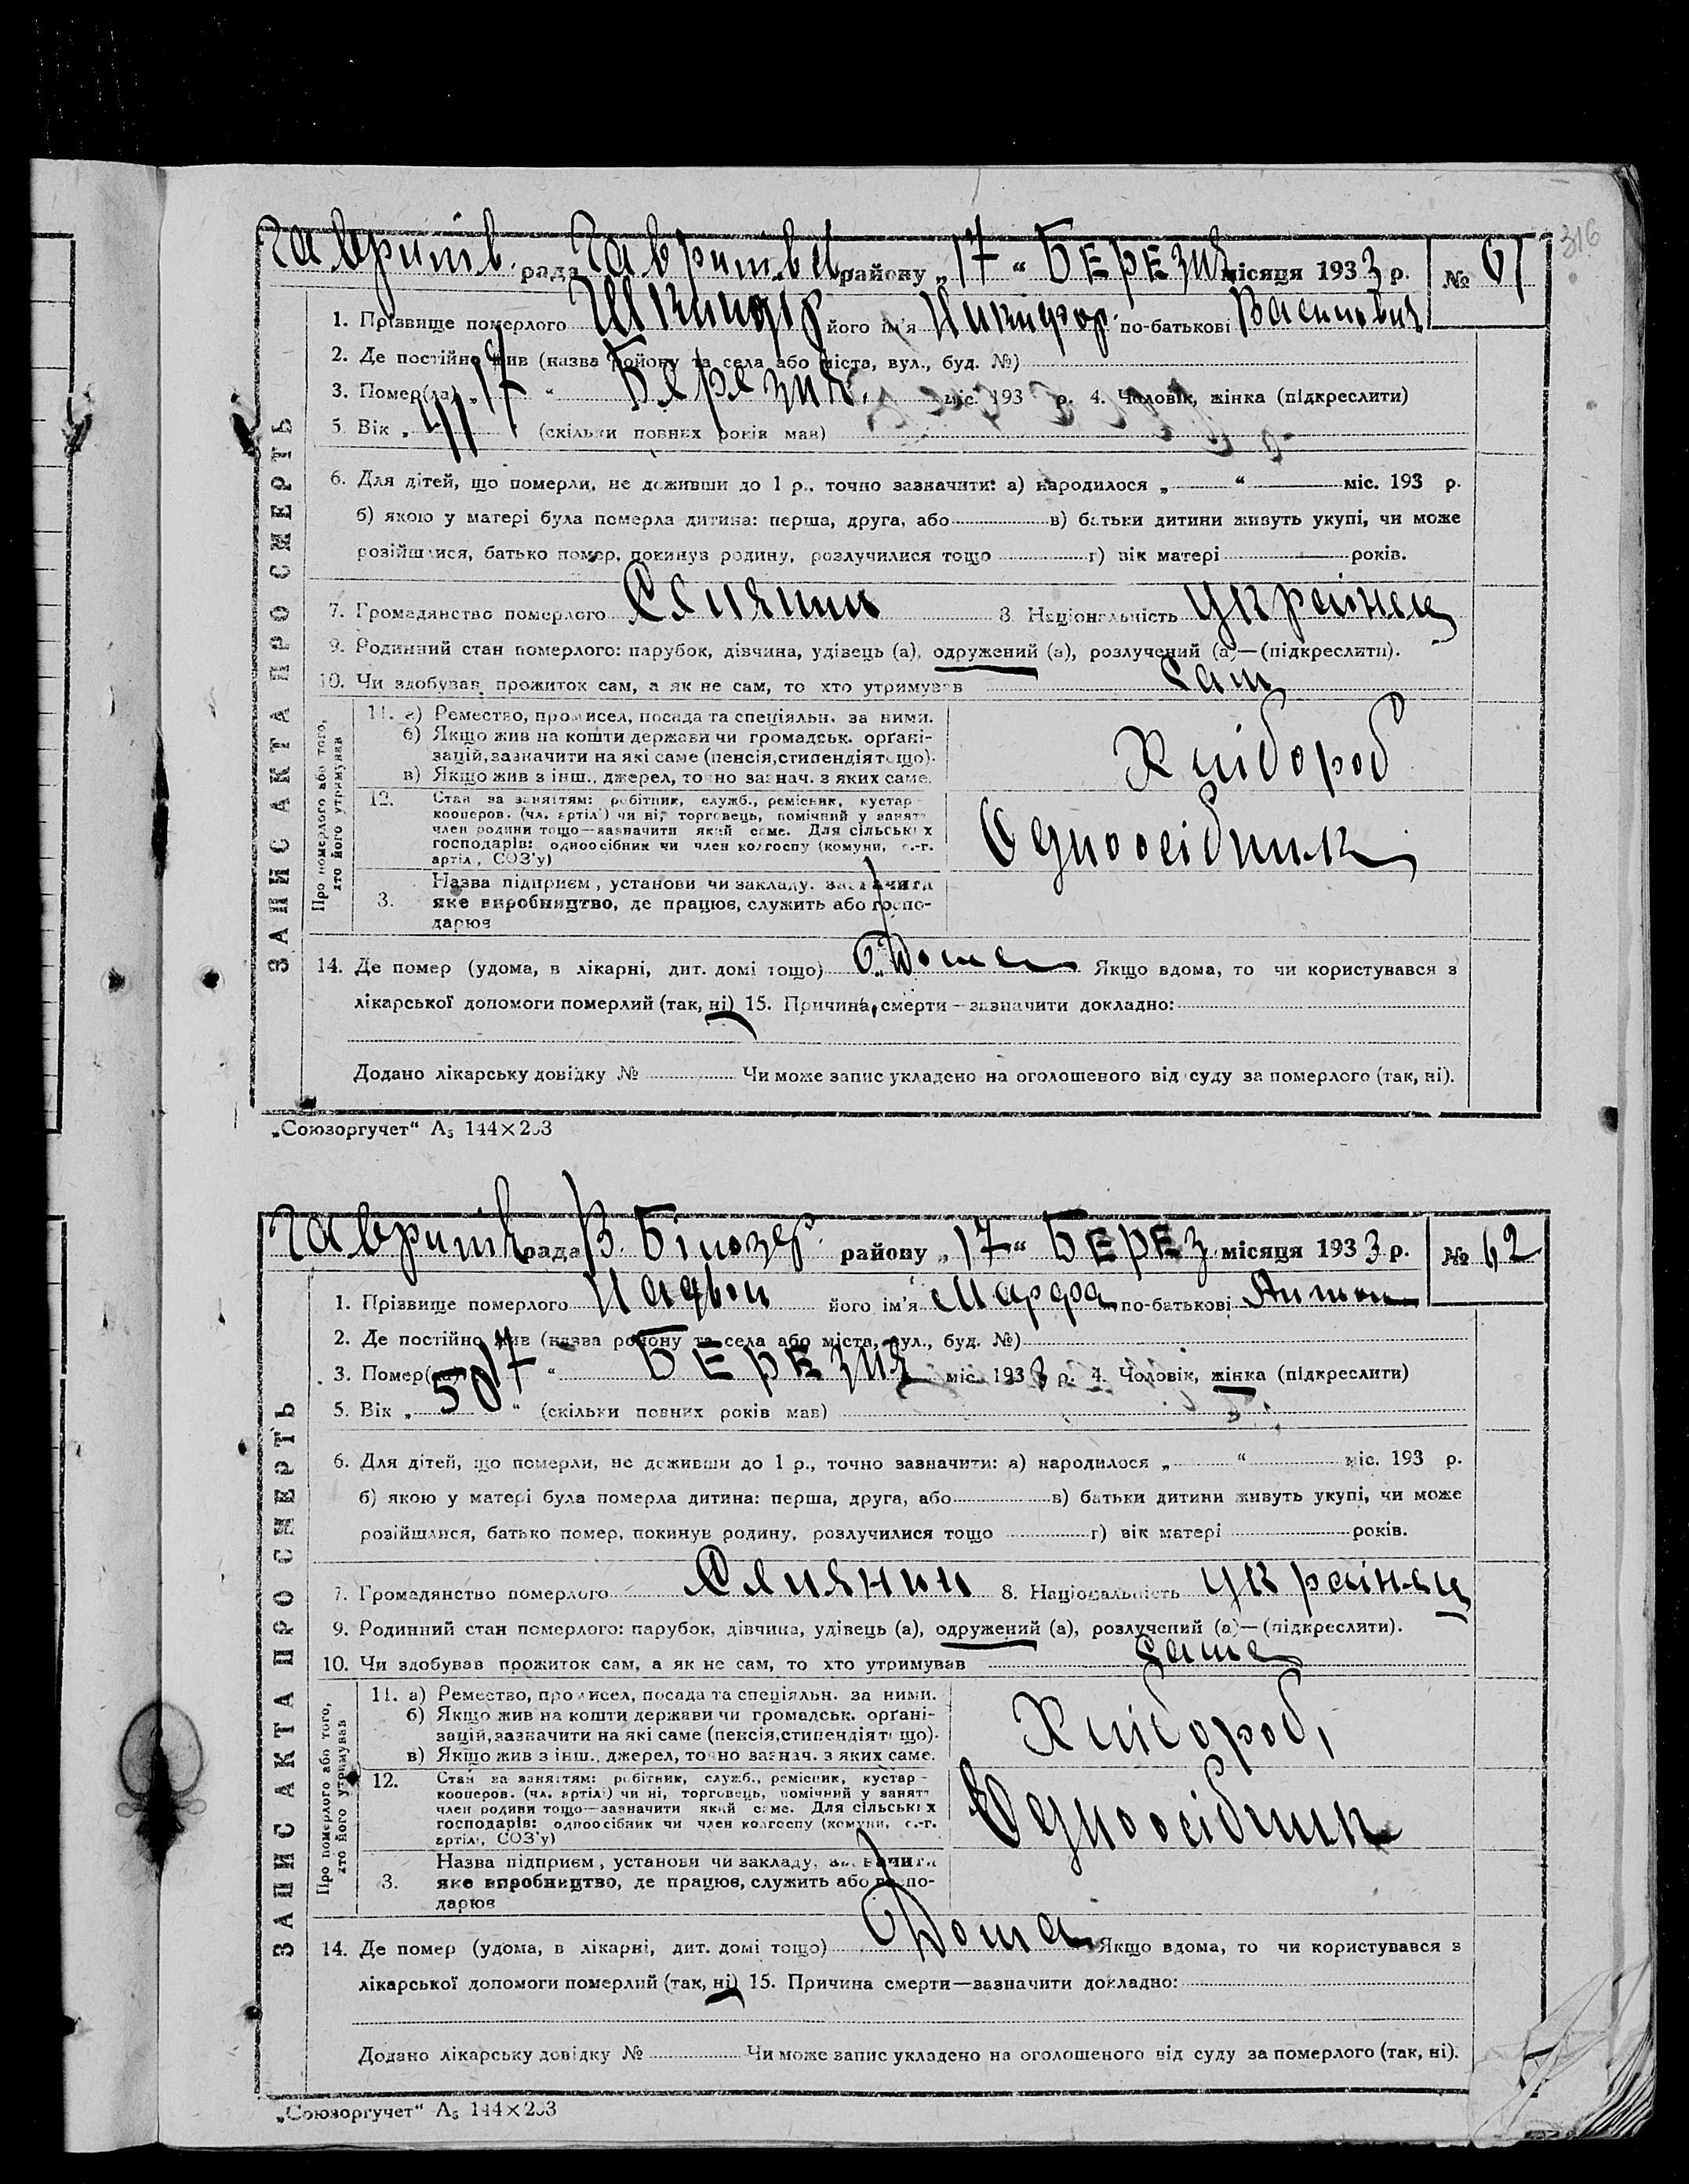 316
Гаврилів. рада Гаврилівсь району „17“ БЕРЕЗНЯ місяця 1933 р. № 61
ЗАПИС АКТА ПРО СМЕРТЬ
1. Прізвище померлого його ім'я Никифор. по-батькові Василович
2. Де постійно жив (назва району та села або міста, вул., буд. №)
3. Помер(ла) „17“ Березня. міс. 193 р. 4. Чоловік, жінка (підкреслити)
5. Вік „41 (скільки повних років мав)
6. Для дітей, що померли, не доживши до 1 р., точно зазначити: а) народилося „ “ міс. 193 р.
б) якою у матері була померла дитина: перша, друга, або в) батьки дитини живуть укупі, чи може
розійшлися, батько помер, покинув родину, розлучилися тощо г) вік матері років.
7. Громадянство померлого Селянин 8. Національність Українец
9. Родинний стан померлого: парубок, дівчина, удівець (а), одружений (а), розлучений (а)—(підкреслити).
10. Чи здобував прожиток сам, а як не сам, то хто утримував Сам
Про померлого або того, хто його утримував
11. а) Ремество, промисел, посада та спеціяльн. за ними.
б) Якщо жив на кошти держави чи громадськ. орґані-
зацій, зазначити на які саме (пенсія, стипендія тощо).
в) Якщо жив з інш. джерел, точно зазнач. з яких саме.
Хлібороб
12. Стан за заняттям: робітник, служб., ремісник, кустар-
кооперов. (чл. артілі) чи ні, торговець, помічний у занятт
член родини тощо—зазначити який саме. Для сільських
господарів: одноосібник чи член колгоспу (комуни, с.-г.
артіл, СОЗ'у)
Одноосібник
3. Назва підприєм, установи чи закладу, зазначити
яке виробництво, де працює, служить або госпо-
дарює
14. Де помер (удома, в лікарні, дит. домі тощо) Дома Якщо вдома, то чи користувався з
лікарської допомоги померлий (так, ні) 15. Причина смерти—зазначити докладно:
Додано лікарську довідку № Чи може запис укладено на оголошеного від суду за померлого (так, ні).
„Союзоргучет“ А5 144×203
Гаврилів рада В. Білозер. району „17“ БЕРЕЗ місяця 1933 р. № 62
ЗАПИС АКТА ПРО СМЕРТЬ
1. Прізвище померлого його ім'я Марфа по-батькові Антон
2. Де постійно жив (назва району та села або міста, вул., буд. №)
3. Помер(ла) 17 “ БЕРЕЗНЯ міс. 1933 р. 4. Чоловік, жінка (підкреслити)
5. Вік „50“ (скільки повних років мав)
6. Для дітей, що померли, не доживши до 1 р., точно зазначити: а) народилося „ “ міс. 193 р.
б) якою у матері була померла дитина: перша, друга, або в) батьки дитини живуть укупі, чи може
розійшлися, батько помер, покинув родину, розлучилися тощо г) вік матері років.
7. Громадянство померлого Селянин 8. Національність Українец
9. Родинний стан померлого: парубок, дівчина, удівець (а), одружений (а), розлучений (а)—(підкреслити).
10. Чи здобував прожиток сам, а як не сам, то хто утримував Сама
Про померлого або того, хто його утримував
11. а) Ремество, промисел, посада та спеціяльн. за ними.
б) Якщо жив на кошти держави чи громадськ. орґані-
зацій, зазначити на які саме (пенсія, стипендія тощо).
в) Якщо жив з інш. джерел, точно зазнач. з яких саме.
Хлібороб,
12. Стан за заняттям: робітник, служб., ремісник, кустар-
кооперов. (чл. артілі) чи ні, торговець, помічний у занятт
член родини тощо—зазначити який саме. Для сільських
господарів: одноосібник чи член колгоспу (комуни, с.-г.
артіл, СОЗ'у)
Одноосібник
3. Назва підприєм, установи чи закладу, зазначити
яке виробництво, де працює, служить або госпо-
дарює
14. Де помер (удома, в лікарні, дит. домі тощо) Дома Якщо вдома, то чи користувався з
лікарської допомоги померлий (так, ні) 15. Причина смерти—зазначити докладно:
Додано лікарську довідку № Чи може запис укладено на оголошеного від суду за померлого (так, ні).
„Союзоргучет“ А5 144×203